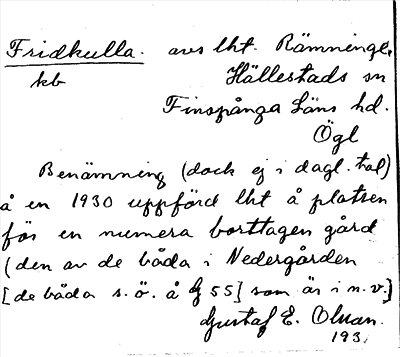 Fridkulla. avs lht. Rämninge,
kb Hällestads sn
Finspånga Läns hd.
Ögl
Benämning (dock ej i dagl. tal)
å en 1930 uppförd lht å platsen
för en numera borttagen gård
(den av de båda i Nedergården
[de båda s.ö. å G 55] som är i n.v.)
Gustaf E. Olsson.
193